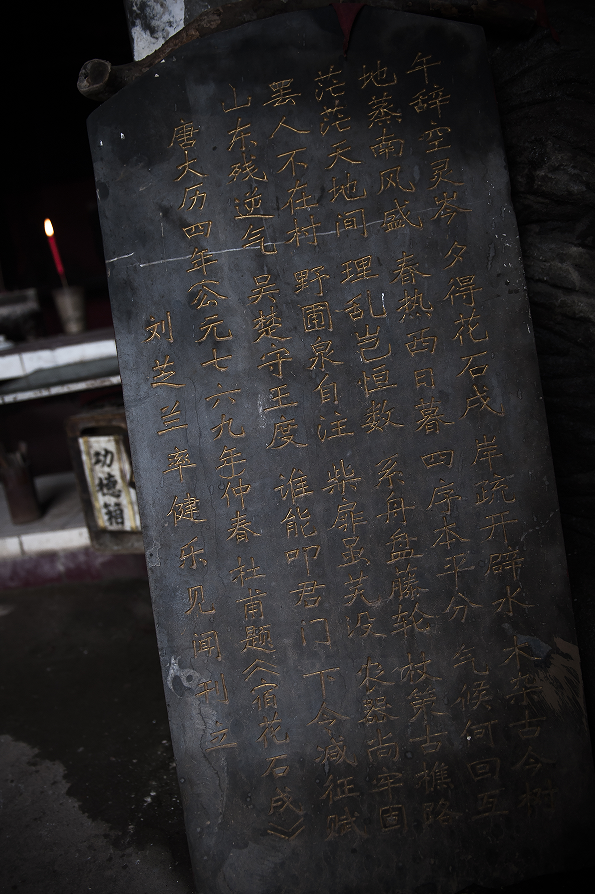 午辞空灵岑 夕得花石戍 岸疏开辟水 木杂古今树
地蒸南风盛 春热西日暮 四序本平分 气候何回互
茫茫天地间 理乱岂恒数 系舟盘藤轮 杖策古樵路
罢人不在村 野圃泉自注 柴扉虽芜没 农器尚牢固
山东残逆气 吴楚守王度 谁能叩君门 下令减征赋
唐大历四年公元七六九年仲春 杜甫题《宿花石戍》
刘芝兰率健乐见闻刊立
功德箱